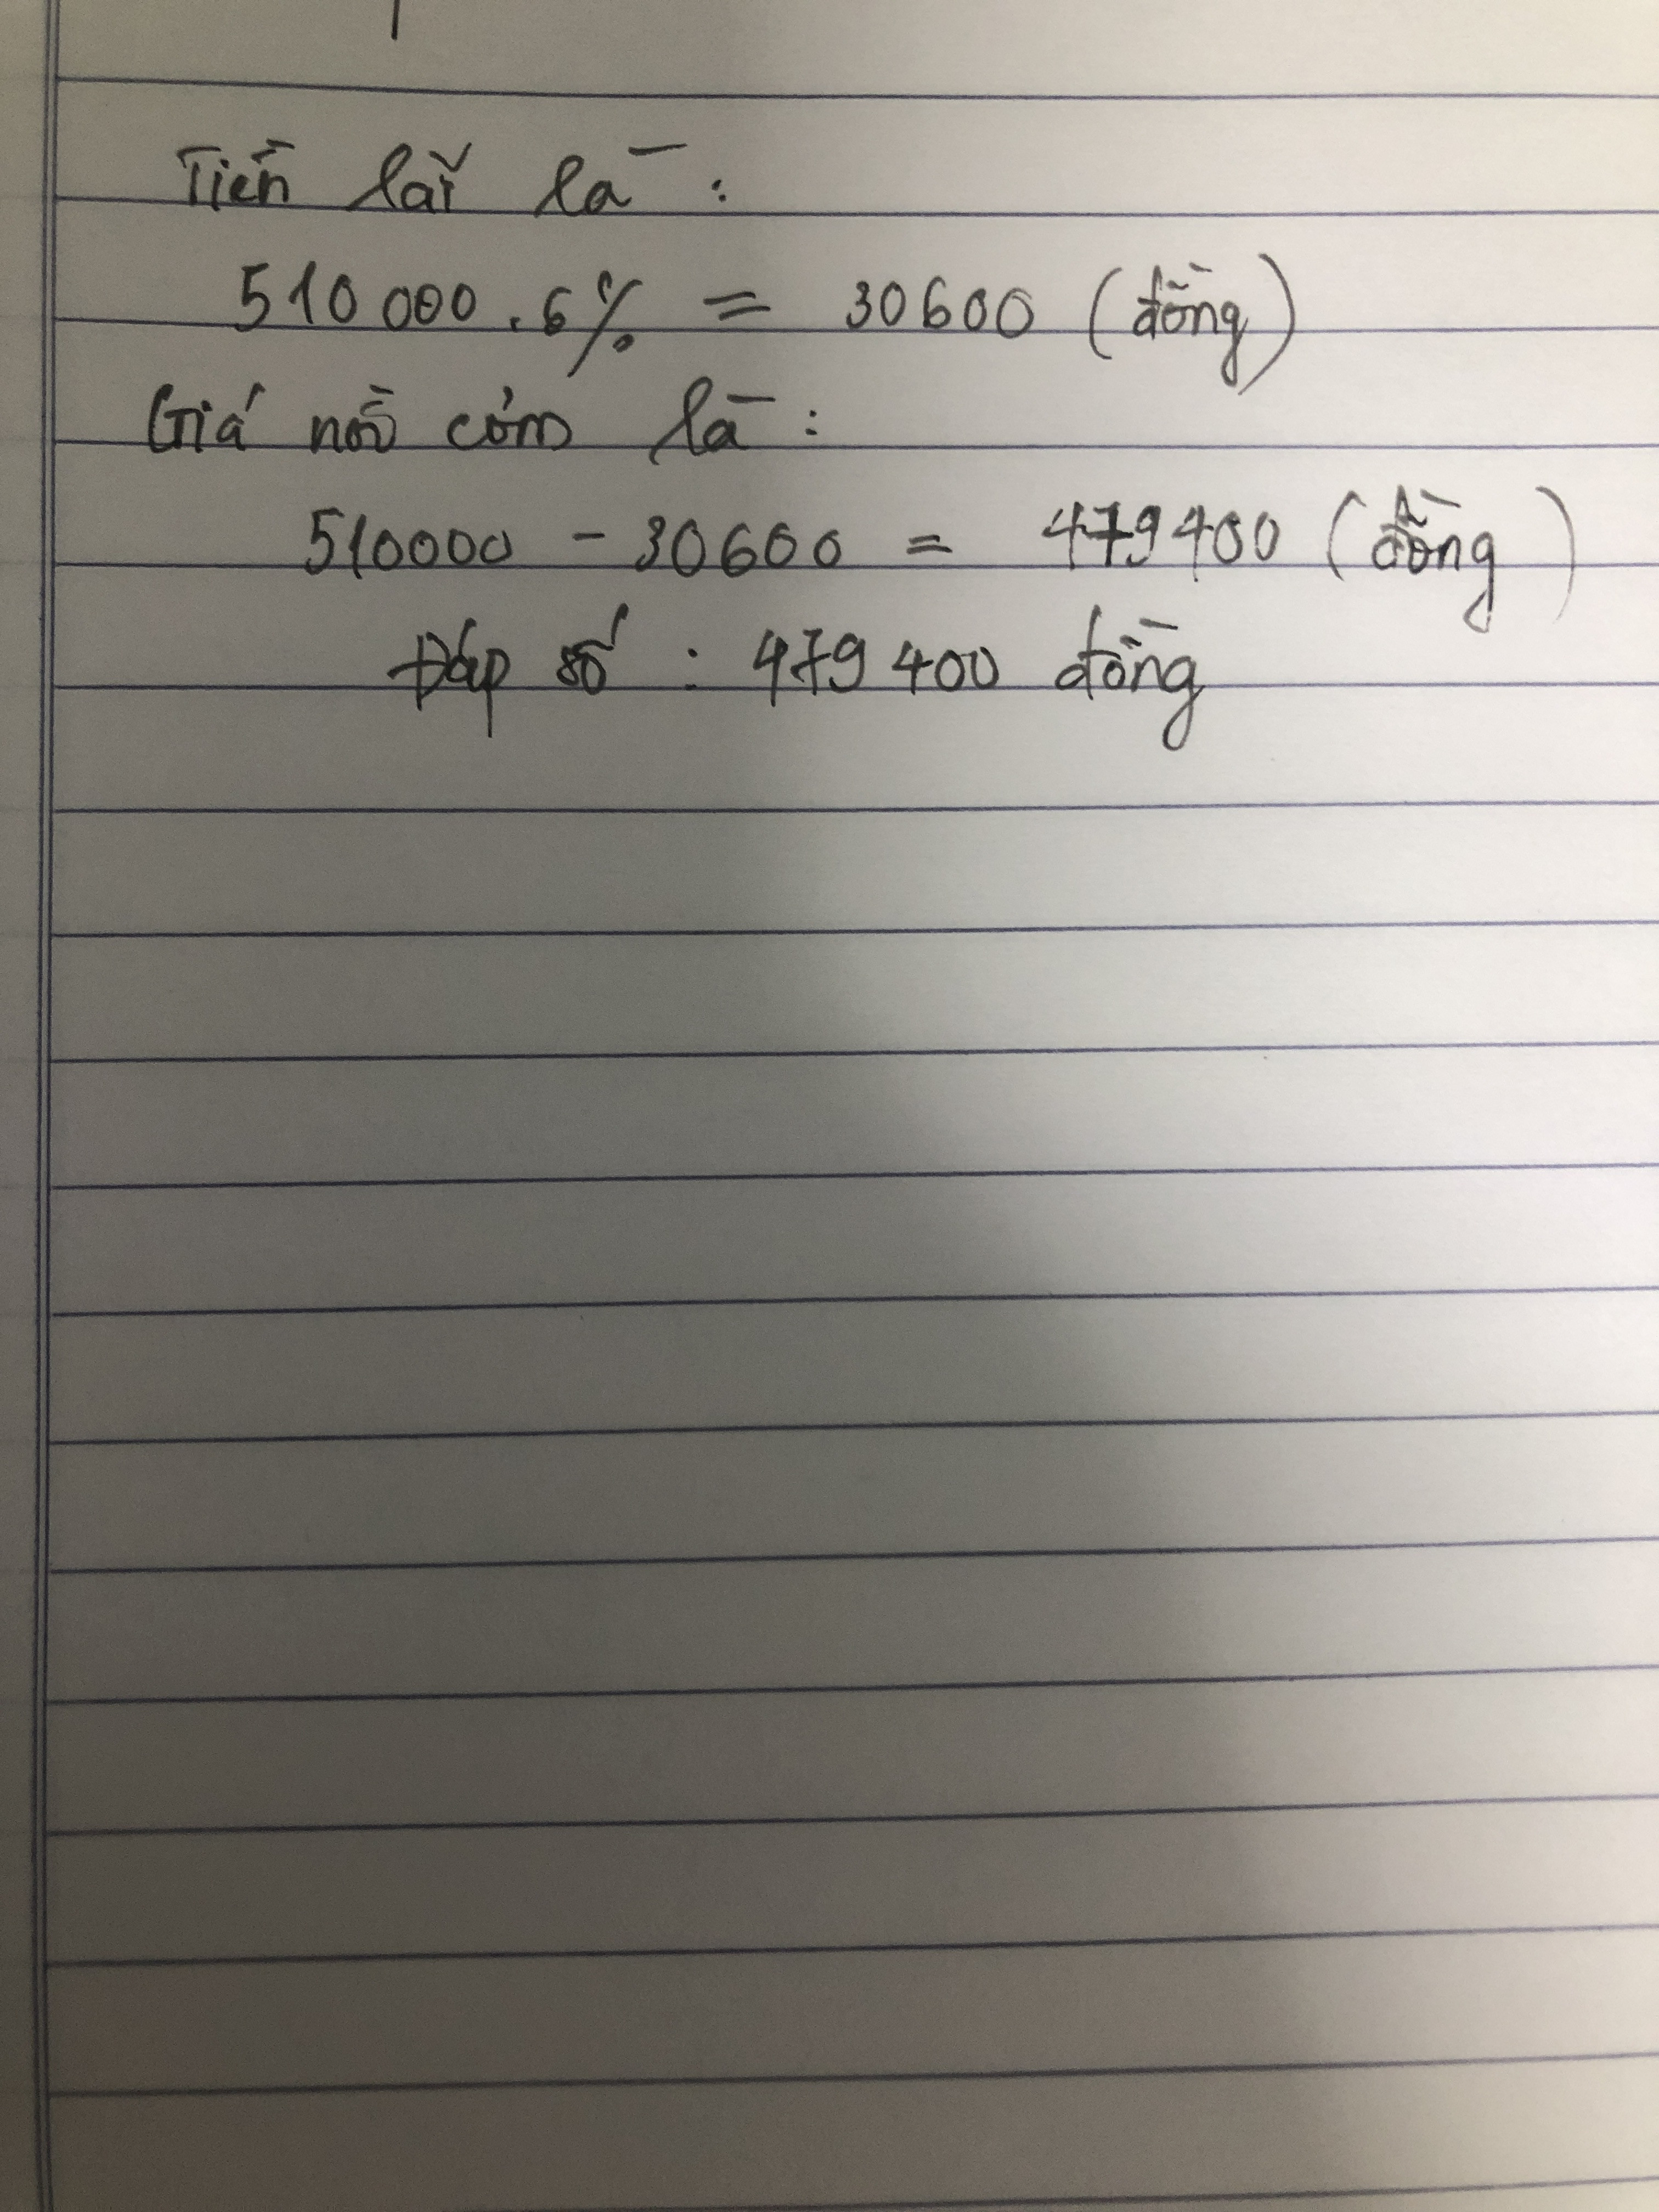 Tiền lãi là :
510 000 . 6% = 30600 (đồng)
Giá nồi cơm là :
510000 - 30600 = 479400 (đồng)
Đáp số : 479 400 đồng